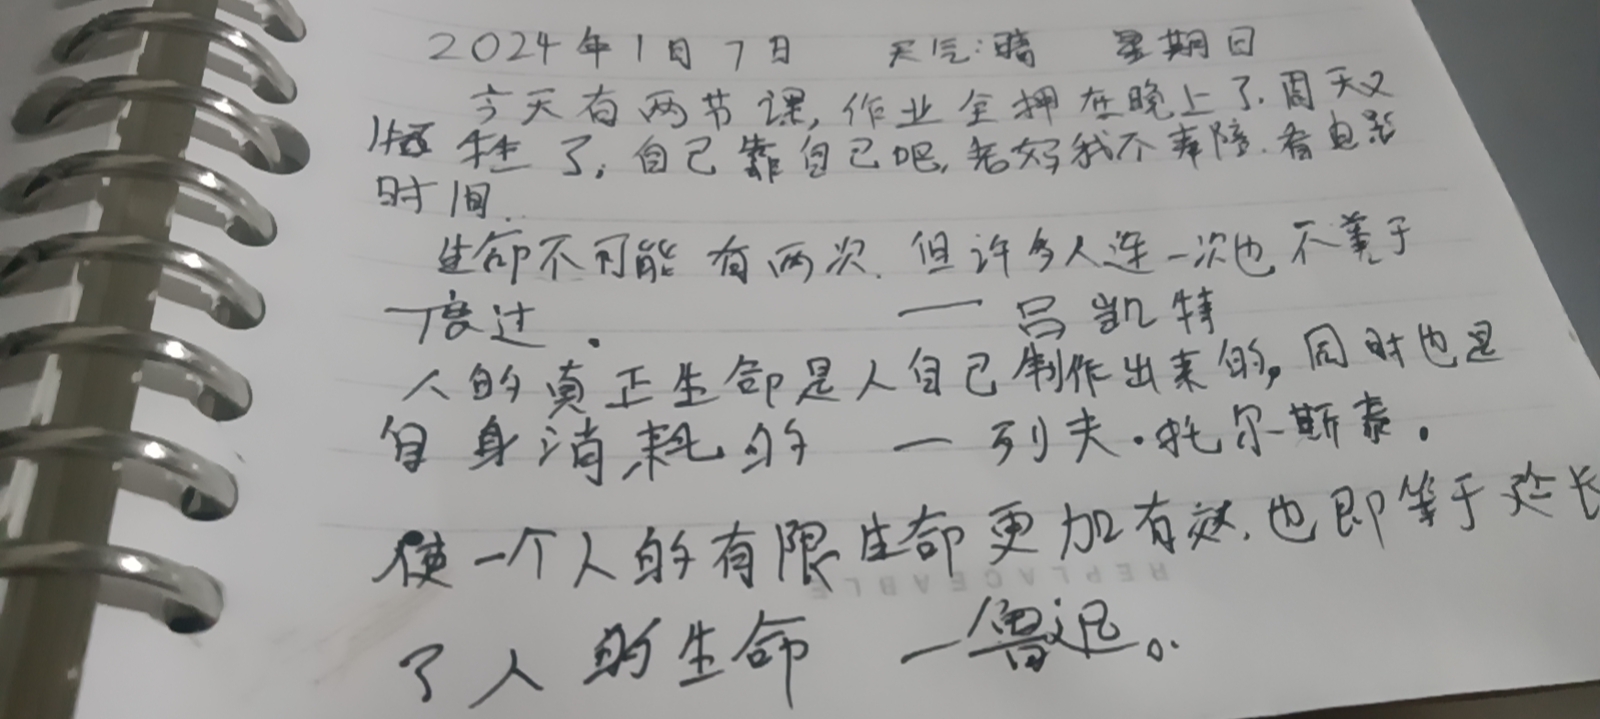 2024年1月7日 天气:晴 星期日
今天有两节课,作业全押在晚上了.周天又
牺牲了,自己靠自己吧,老好我不奉陪.看电影
时间.
生命不可能有两次.但许多人连一次也不善于
度过.
一吕凯特
人的真正生命是人自己制作出来的,同时也是
自身消耗的 一列夫·托尔斯泰.
使一个人的有限生命更加有效,也即等于延长
了人的生命 一鲁迅。
REPLACEABLE